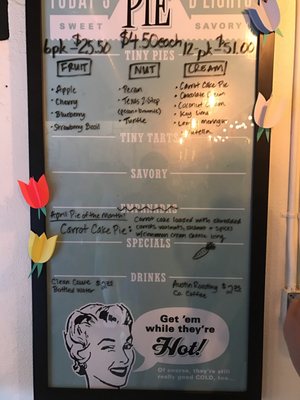 TODAY'S DELIGHTS
SWEET PIE SAVORY
6pk $25.50 $4.50 each 12-pk $51.00
TINY PIES
FRUIT NUT CREAM
• Apple
• Cherry
• Blueberry
• Strawberry Basil
• Pecan
• Texas 2-Step
(pecan + brownie)
• Turtle
• Carrot Cake Pie
• Chocolate Cream
• Coconut Cream
• Key Lime
• Lemon Meringue
• Nutella
TINY TARTS
SAVORY
EMPANADAS
April Pie of the Month!
Carrot Cake Pie:
Carrot cake loaded with shredded
carrots, walnuts, coconut + spices
w/cinnamon cream cheese icing
SPECIALS
DRINKS
Clean Cause
Bottled Water
Austin Roasting
Co. Coffee
Get 'em
while they're
Hot!
Of course, they're still
really good COLD, too...